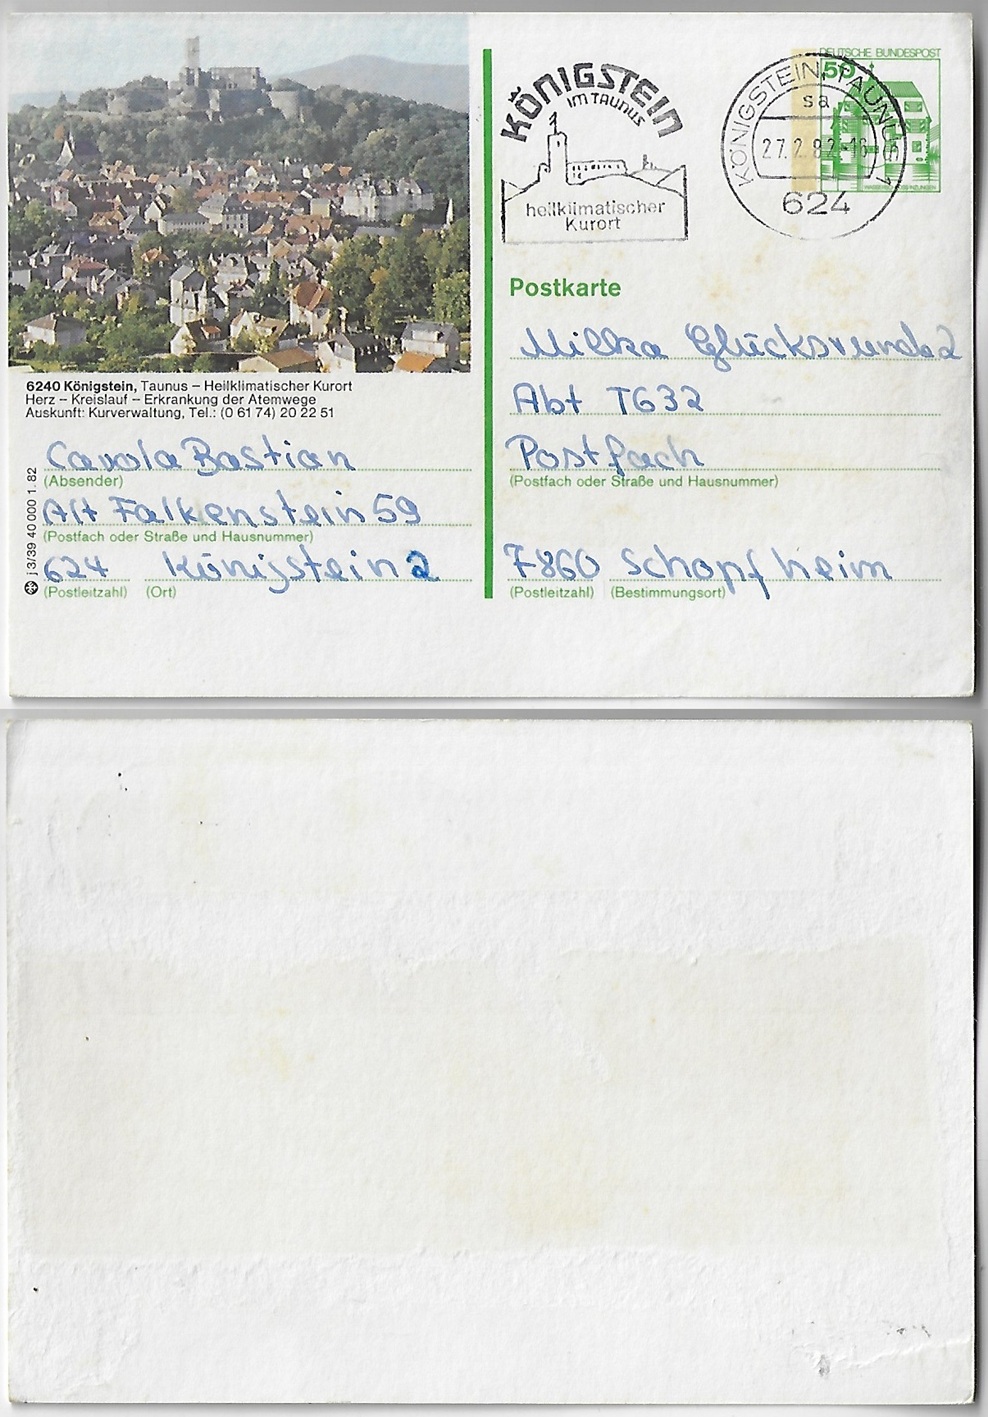 6240 Königstein, Taunus – Heilklimatischer Kurort
Herz – Kreislauf – Erkrankung der Atemwege
Auskunft: Kurverwaltung, Tel.: (0 61 74) 20 22 51
Carola Bastian
(Absender)
Alt Falkenstein 59
(Postfach oder Straße und Hausnummer)
624 Königstein 2
(Postleitzahl) (Ort)
j 3/39 40 000 1. 82
KÖNIGSTEIN
IM TAUNUS
heilklimatischer
Kurort
DEUTSCHE BUNDESPOST
50
KÖNIGSTEIN, TAUNUS 1
sa
27.2.82-16
624
Postkarte
Milka Glücksrunde 2
Abt T632
Postfach
(Postfach oder Straße und Hausnummer)
7860 Schopfheim
(Postleitzahl) (Bestimmungsort)